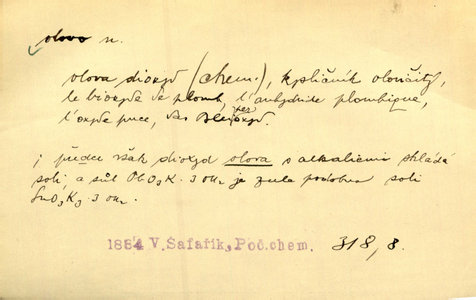 olovo n.
olova dioxyd (chem.), kysličník olovičitý,
le bioxyde de plomb, l'anhydride plombique,
l'oxyde puce, das Bleiperoxyd.
; předce však dioxyd olova s alkaliemi skládá
soli, a sůl PbO3K . 3 OH2 je zcela podobna soli
SnO3K2 . 3 OH2.
1864 V. Šafařík, Poč.chem. 318, 8.